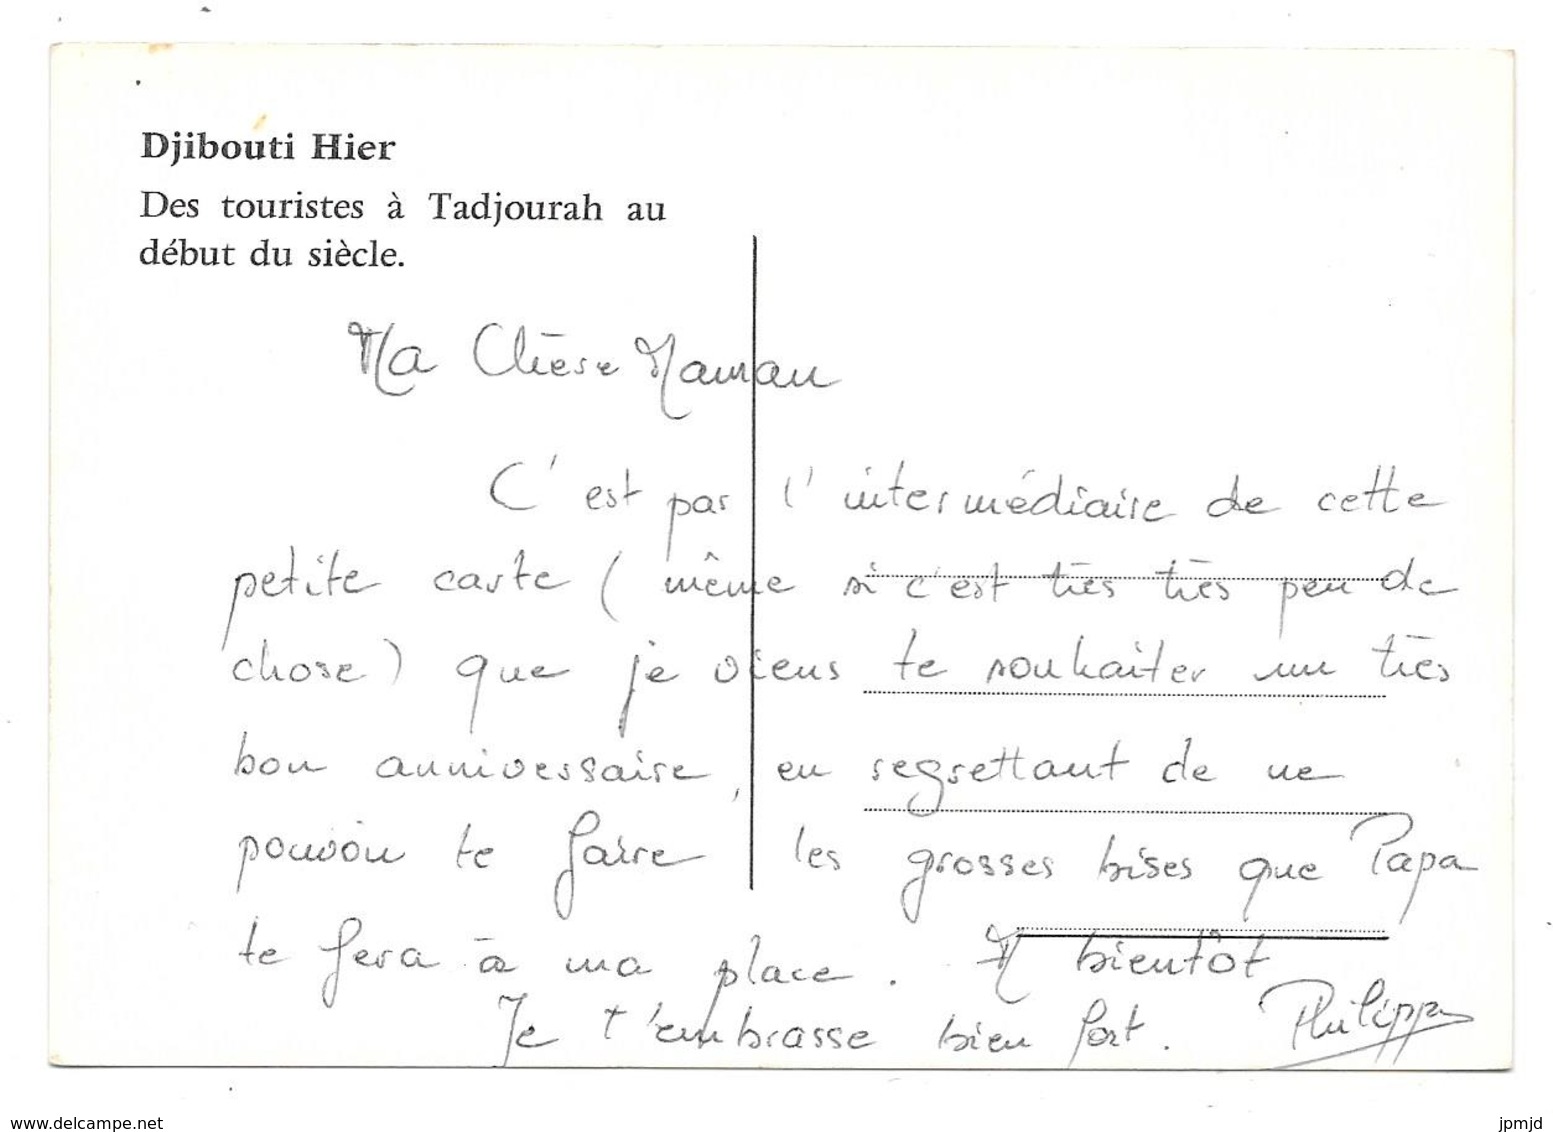 Djibouti Hier
Des touristes à Tadjourah au
début du siècle.
Ma Chère Maman
C'est par l'intermédiaire de cette
petite carte (même si c'est très très peu de
chose) que je viens te souhaiter un très
bon anniversaire, en regrettant de ne
pouvoir te faire les grosses bises que Papa
te fera à ma place. A bientôt
Je t'embrasse bien fort. Philippe
www.delcampe.net
jpmjd